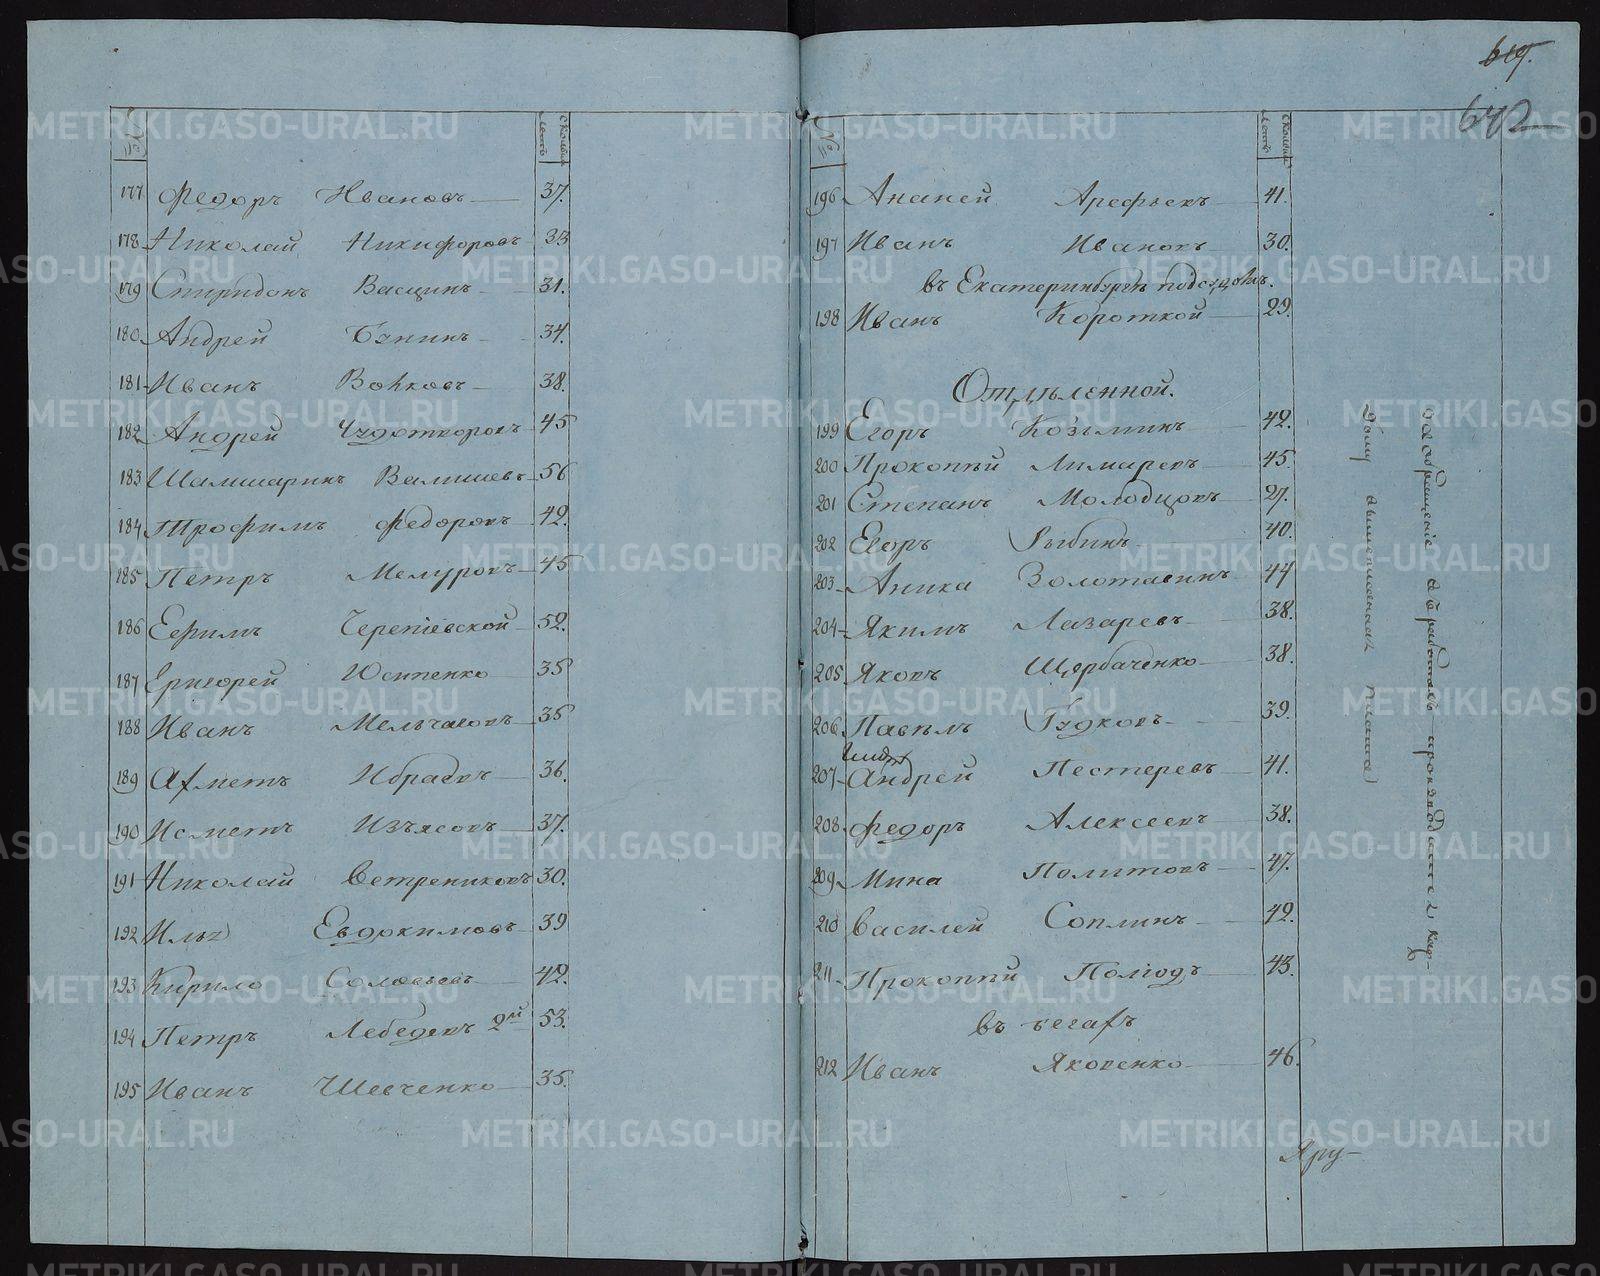 619.
642
№
Сколько
Летъ
177 Федоръ Ивановъ 37.
178 Николай Никифоровъ 33
179 Спиридонъ Васцинъ 31.
180 Андрей 34.
181 Иванъ Волковъ 38.
182 Андрей Чудотворовъ 45
183 Шамшаринъ Валишевъ 56
184 Трофимъ Федоровъ 42.
185 Петръ Мелуровъ 45
186 Ефимъ 52.
187 Григорей Юсипенко 35
188 Иванъ Мельчаковъ 35
189 Ахметъ Ибраевъ 36.
190 Исметъ Изъясовъ 37.
191 Николай Ветрениковъ 30.
192 Илья Евдокимовъ 39
193 Кирило Соловьевъ 42.
194 Петръ Лебедевъ 2й 53.
195 Иванъ Шевченко 35.
№
Сколько
Летъ
196 Ананей Арефьевъ 41.
197 Иванъ Ивановъ 30.
въ Екатеринбургѣ подсудовъ.
198 Иванъ Короткой 29.
Отдѣленной.
199 Егоръ Козьминъ 42.
200 Прокопѣй Лимаревъ 45.
201 Степанъ Молодцовъ 27.
202 Егоръ Рыбинъ 40.
203 Аника Золотавинъ 44
204 Якимъ Лазаревъ 38.
205 Яковъ Щербаченко 38.
206 Павелъ Гудковъ 39.
207 Андрей Пестеревъ 41.
208 Федоръ Алексеевъ 38.
209 Мина Политовъ 47.
210 Василей Соплинъ 42.
211 Прокопѣй Полюдъ 43.
въ бегахъ
212 Иванъ Яковенко 46.
METRIKI.GASO-URAL.RU